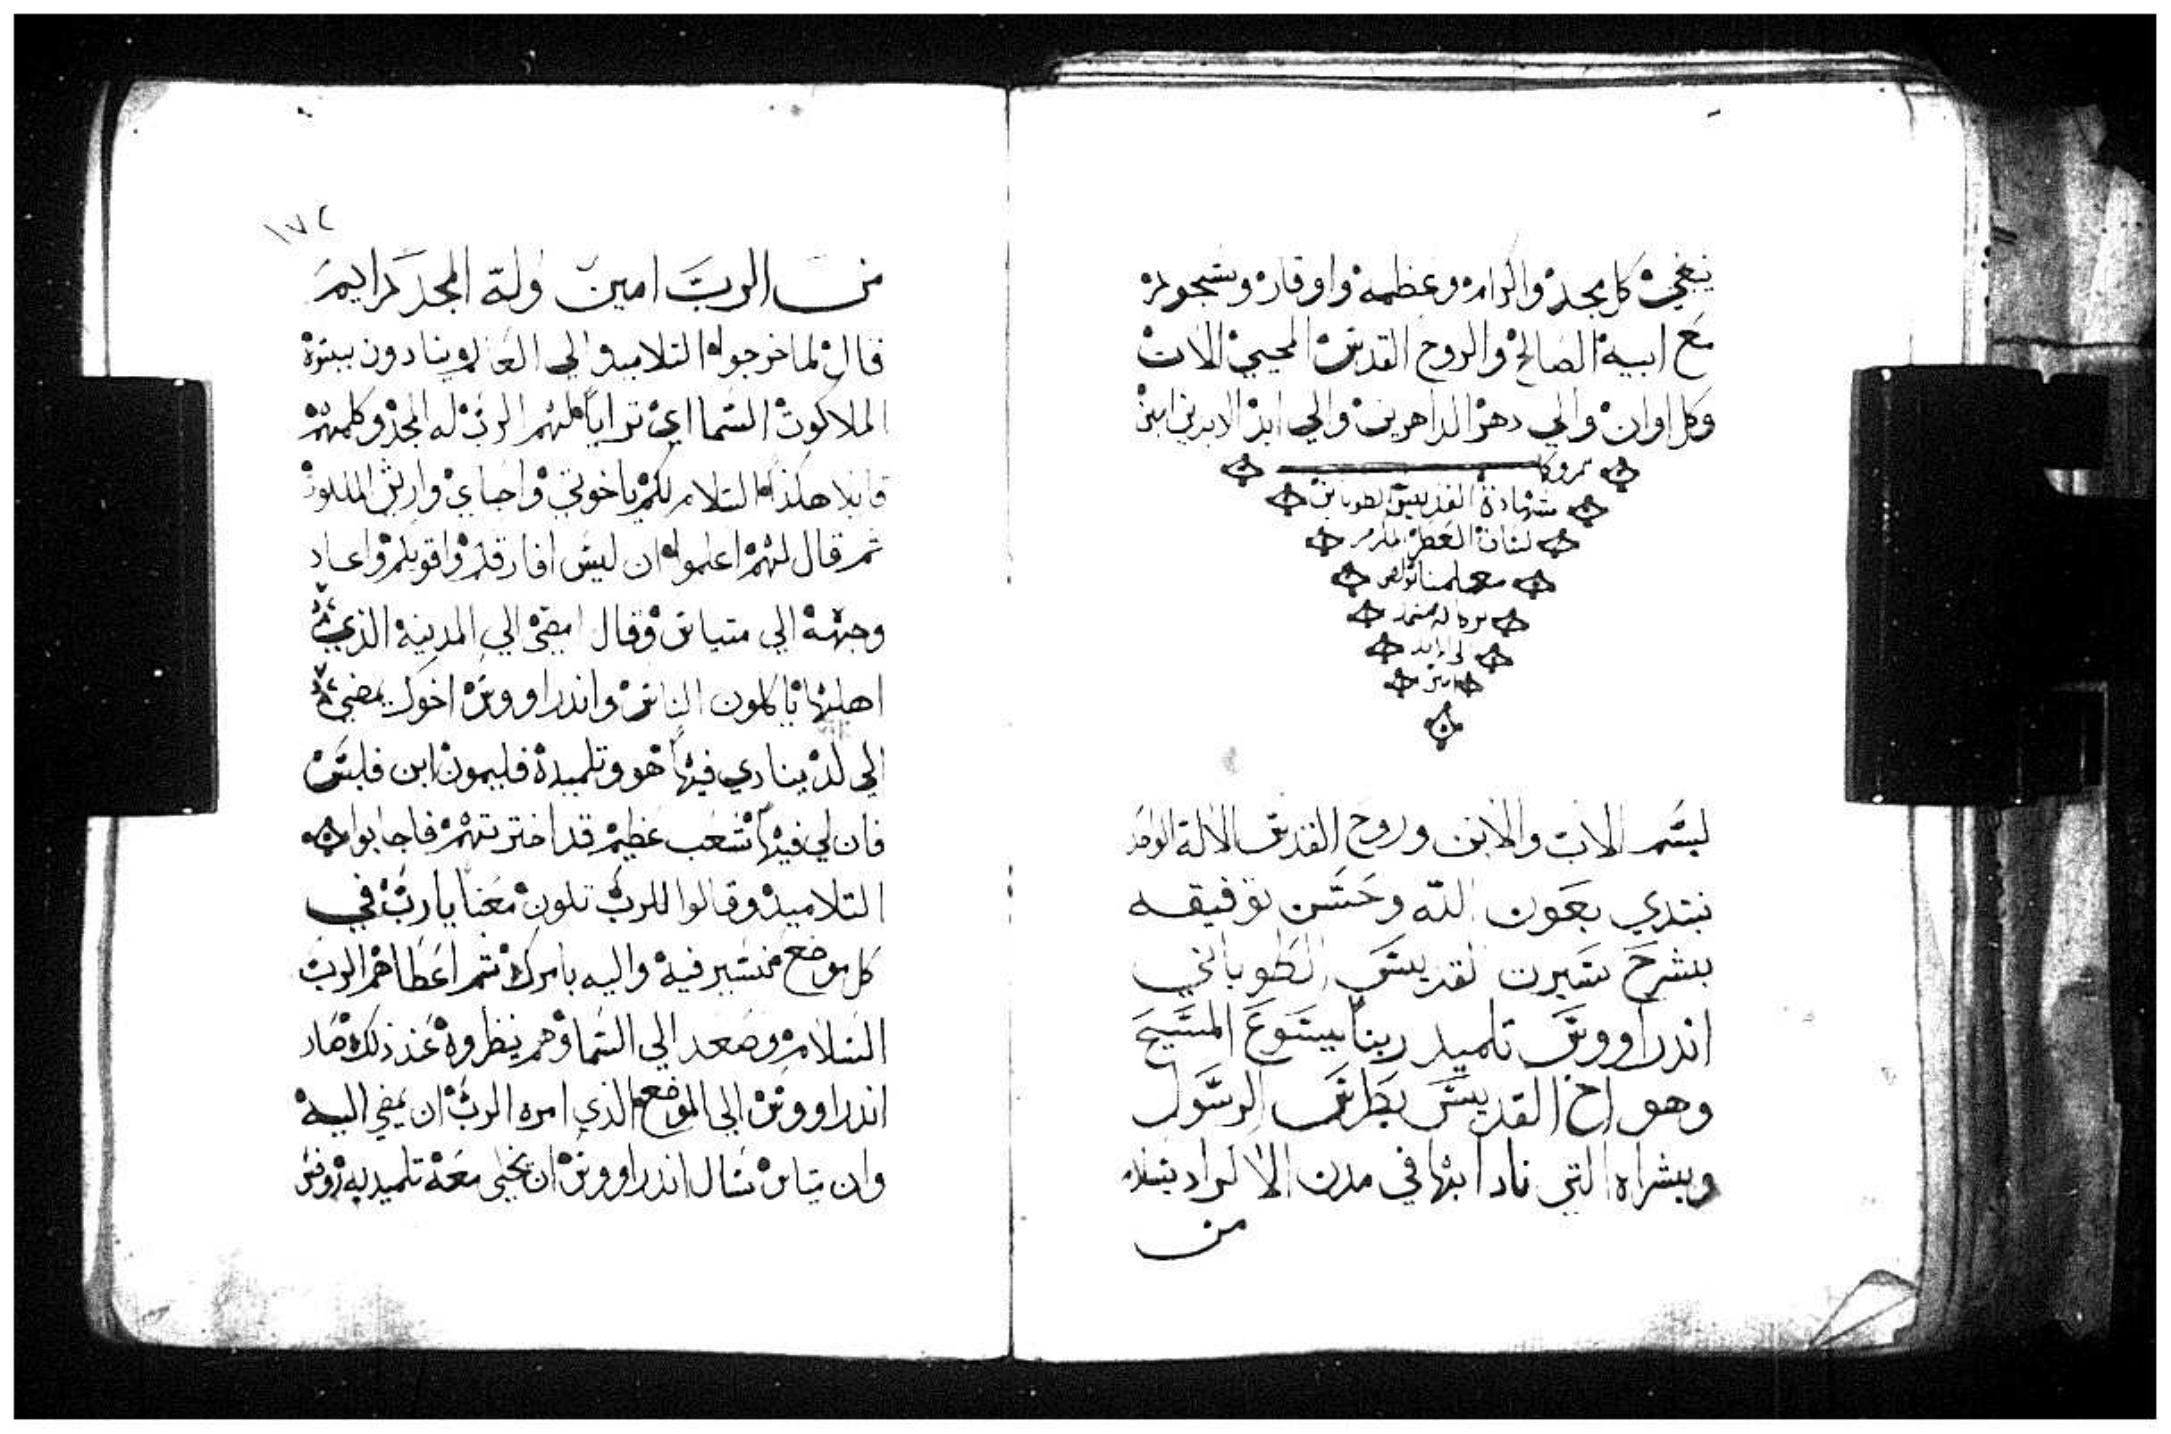 ينبغي كل مجد واكرامه وعظمه واوقار وسجود
مع ابيه الصالح والروح القدس المحيي الان
وكل اوان والي دهر الداهرين والي ابد الابدين امين
شهادة القديس الطوباني
لسان العطر
معلمنا بولص
بركاته
الي الابد
امين
بسم الاب والابن وروح القدس الاله الواحد
نبتدي بعون الله وحسن توفيقه
بشرح سيرت لقديس الطوباني
اندراووس تلميد ربنا يسوع المسيح
وهو اخ القديس بطرس الرسول
وبشراه التي نادا بها في مدن الاكراد بسلام
من
١٧٢
من الرب امين وله المجد دايم
قال لما خرجوا التلاميد الي العالم ينادون ببشرة
الملاكوت السما اي ترايا لهم الرب له المجد وكلمهم
قايلا هكذا السلام لكم ياخوتي واحباي وارثي الملكوت
ثم قال لهم اعلموا ان ليس افارقكم واقويكم واعاد
وجهه الي متياس وقال امضي الي المدينه الذي
اهلها ياكلون الناس واندراووس اخوك يمضي
الي لد ينادي فيها هو وتلميدة فليمون ابن فلبس
فان لي فيها شعب عظيم قد اخترتهم فاجابوا
التلاميد وقالوا للرب تكون معنا يا رب في
كل موضع نسير فيه واليه بامرك ثم اعطاهم الرب
السلام وصعد الي السما وهم ينظروه عند ذلك صار
اندراووس الي الموضع الذي امره الرب ان يمضي اليه
وان متياس سال اندراووس ان يخلي معه تلميديه روفس